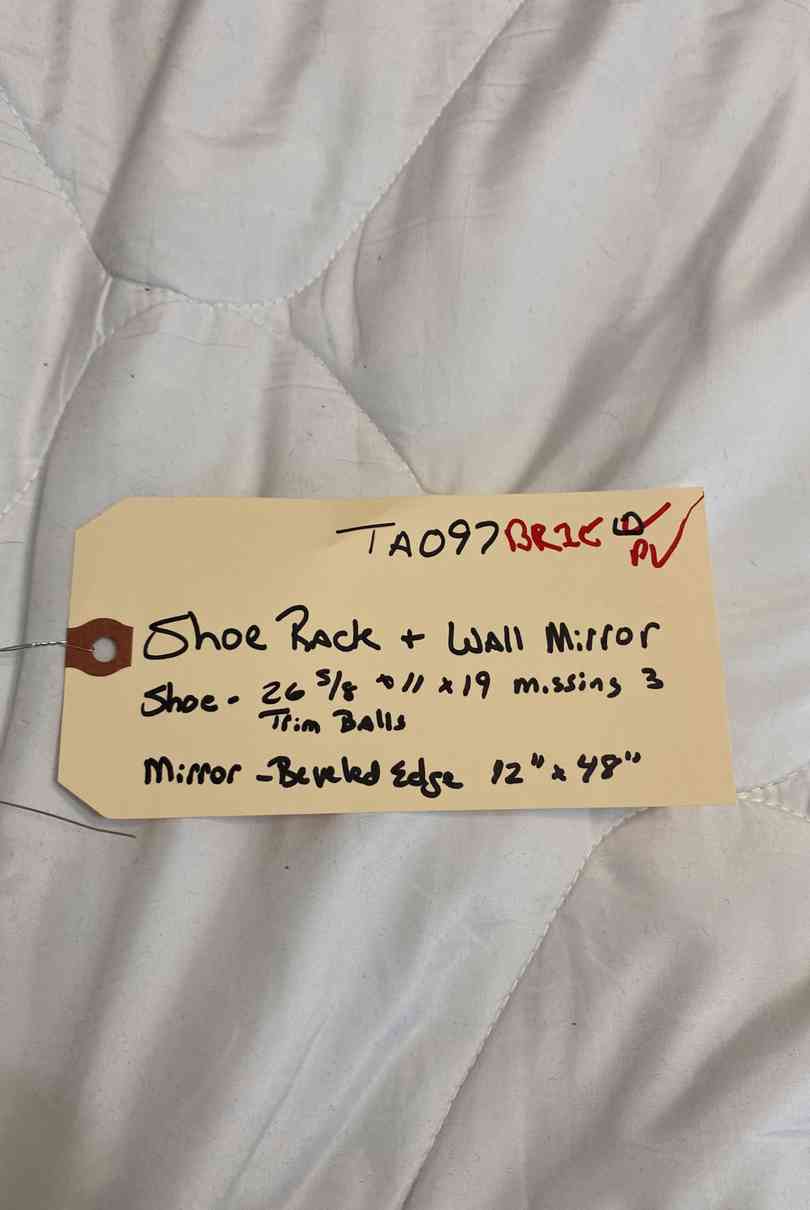 TA097 BR1C LD
PV
Shoe Rack + Wall Mirror
Shoe - 26 5/8 x 11 x 19 missing 3
Trim Balls
Mirror - Beveled Edge 12" x 48"